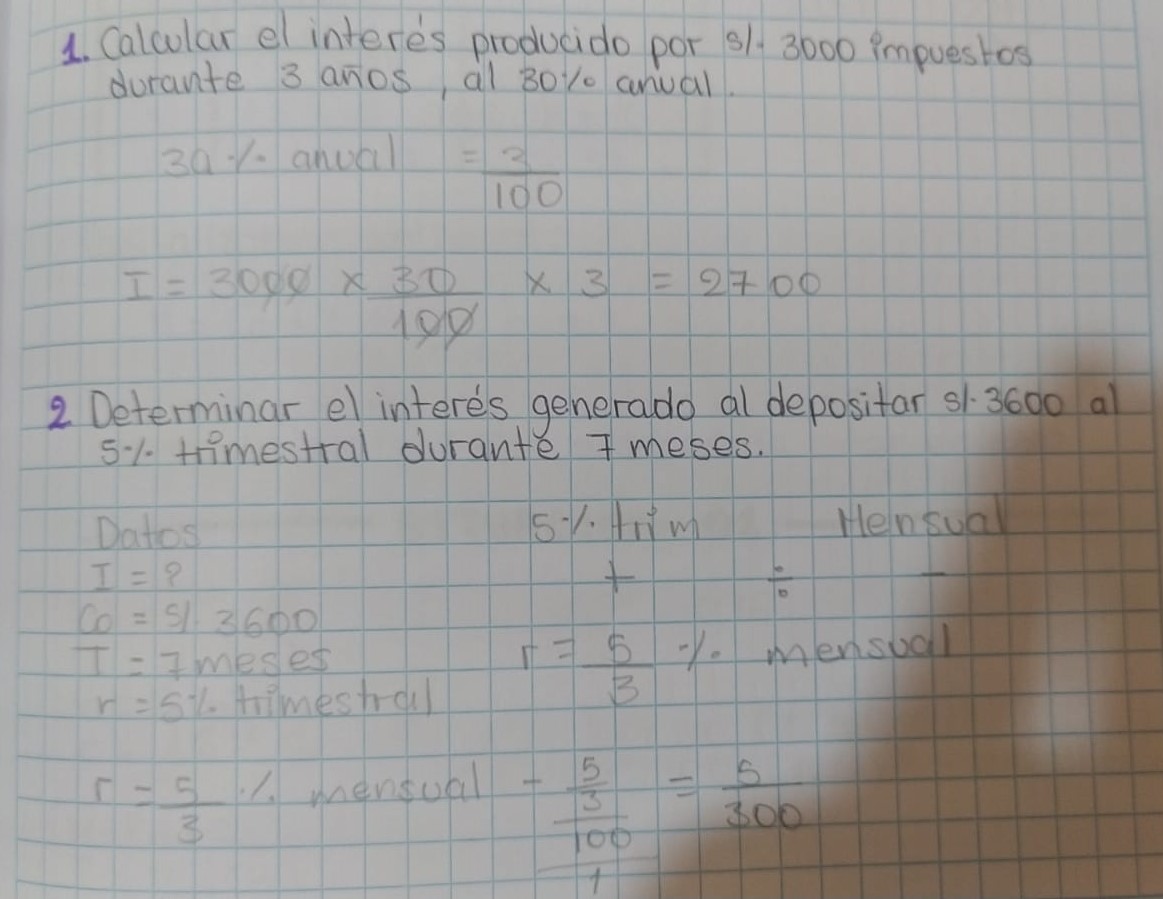 1. Calcular el interés producido por s/. 3000 impuestos
durante 3 años, al 30% anual.
30 % anual = 3/100
I = 3000 x 30/100 x 3 = 2700
2 Determinar el interés generado al depositar s/. 3600 al
5% trimestral durante 7 meses.
Datos 5% trim Mensual
I = ? + ÷ -
Co = S/. 3600
T = 7 meses r = 5/3 % mensual
r = 5% trimestral
r = 5/3 % mensual - 5/3/100/1 = 5/300